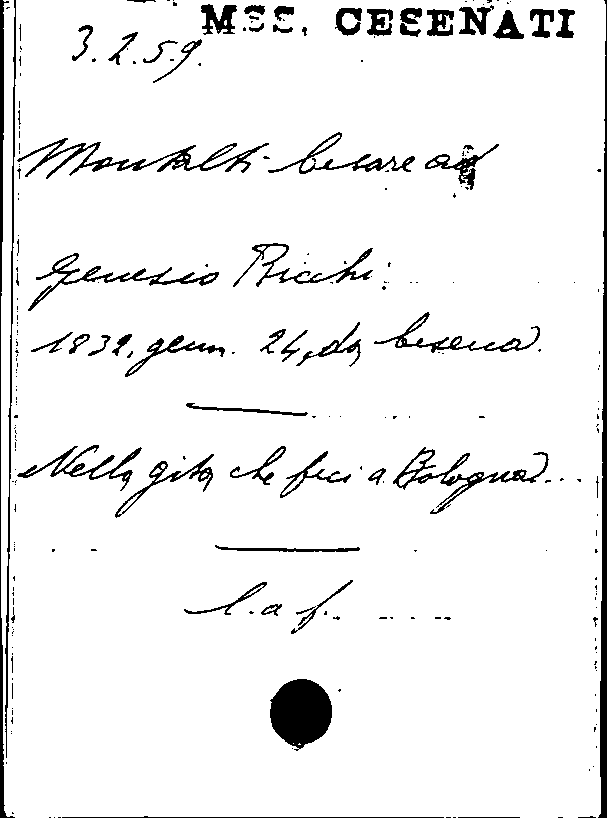 MSS. CESENATI
3.2.59.
Montalti Cesare ad
Genesio Ricchi.
1832, genn. 24, da Cesena.
Nella gita che feci a Bologna...
l. a f.